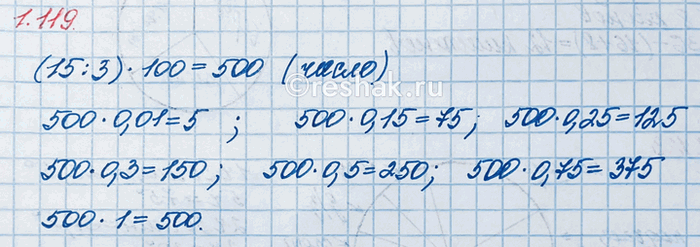 1.119.
(15:3)·100=500 (число)
500·0,01=5 ; 500·0,15=75; 500·0,25=125
500·0,3=150; 500·0,5=250; 500·0,75=375
500·1=500.
reshak.ru